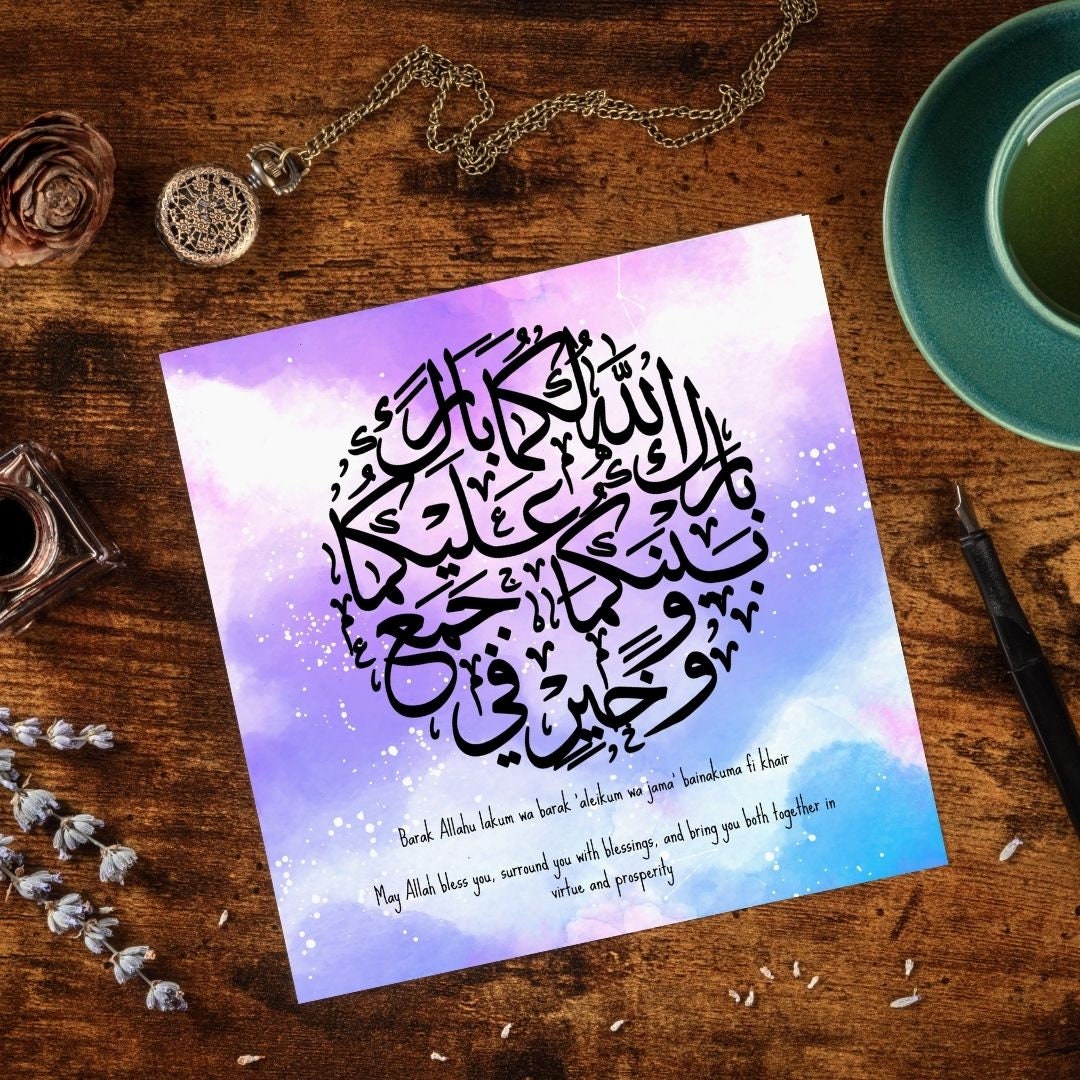 بَارَكَ اللّٰهُ لَكُمَا
وَ بَارَكَ عَلَيْكُمَا
وَ جَمَعَ بَيْنَكُمَا
فِي خَيْرٍ
Barak Allahu lakum wa barak 'aleikum wa jama' bainakuma fi khair
May Allah bless you, surround you with blessings, and bring you both together in
virtue and prosperity